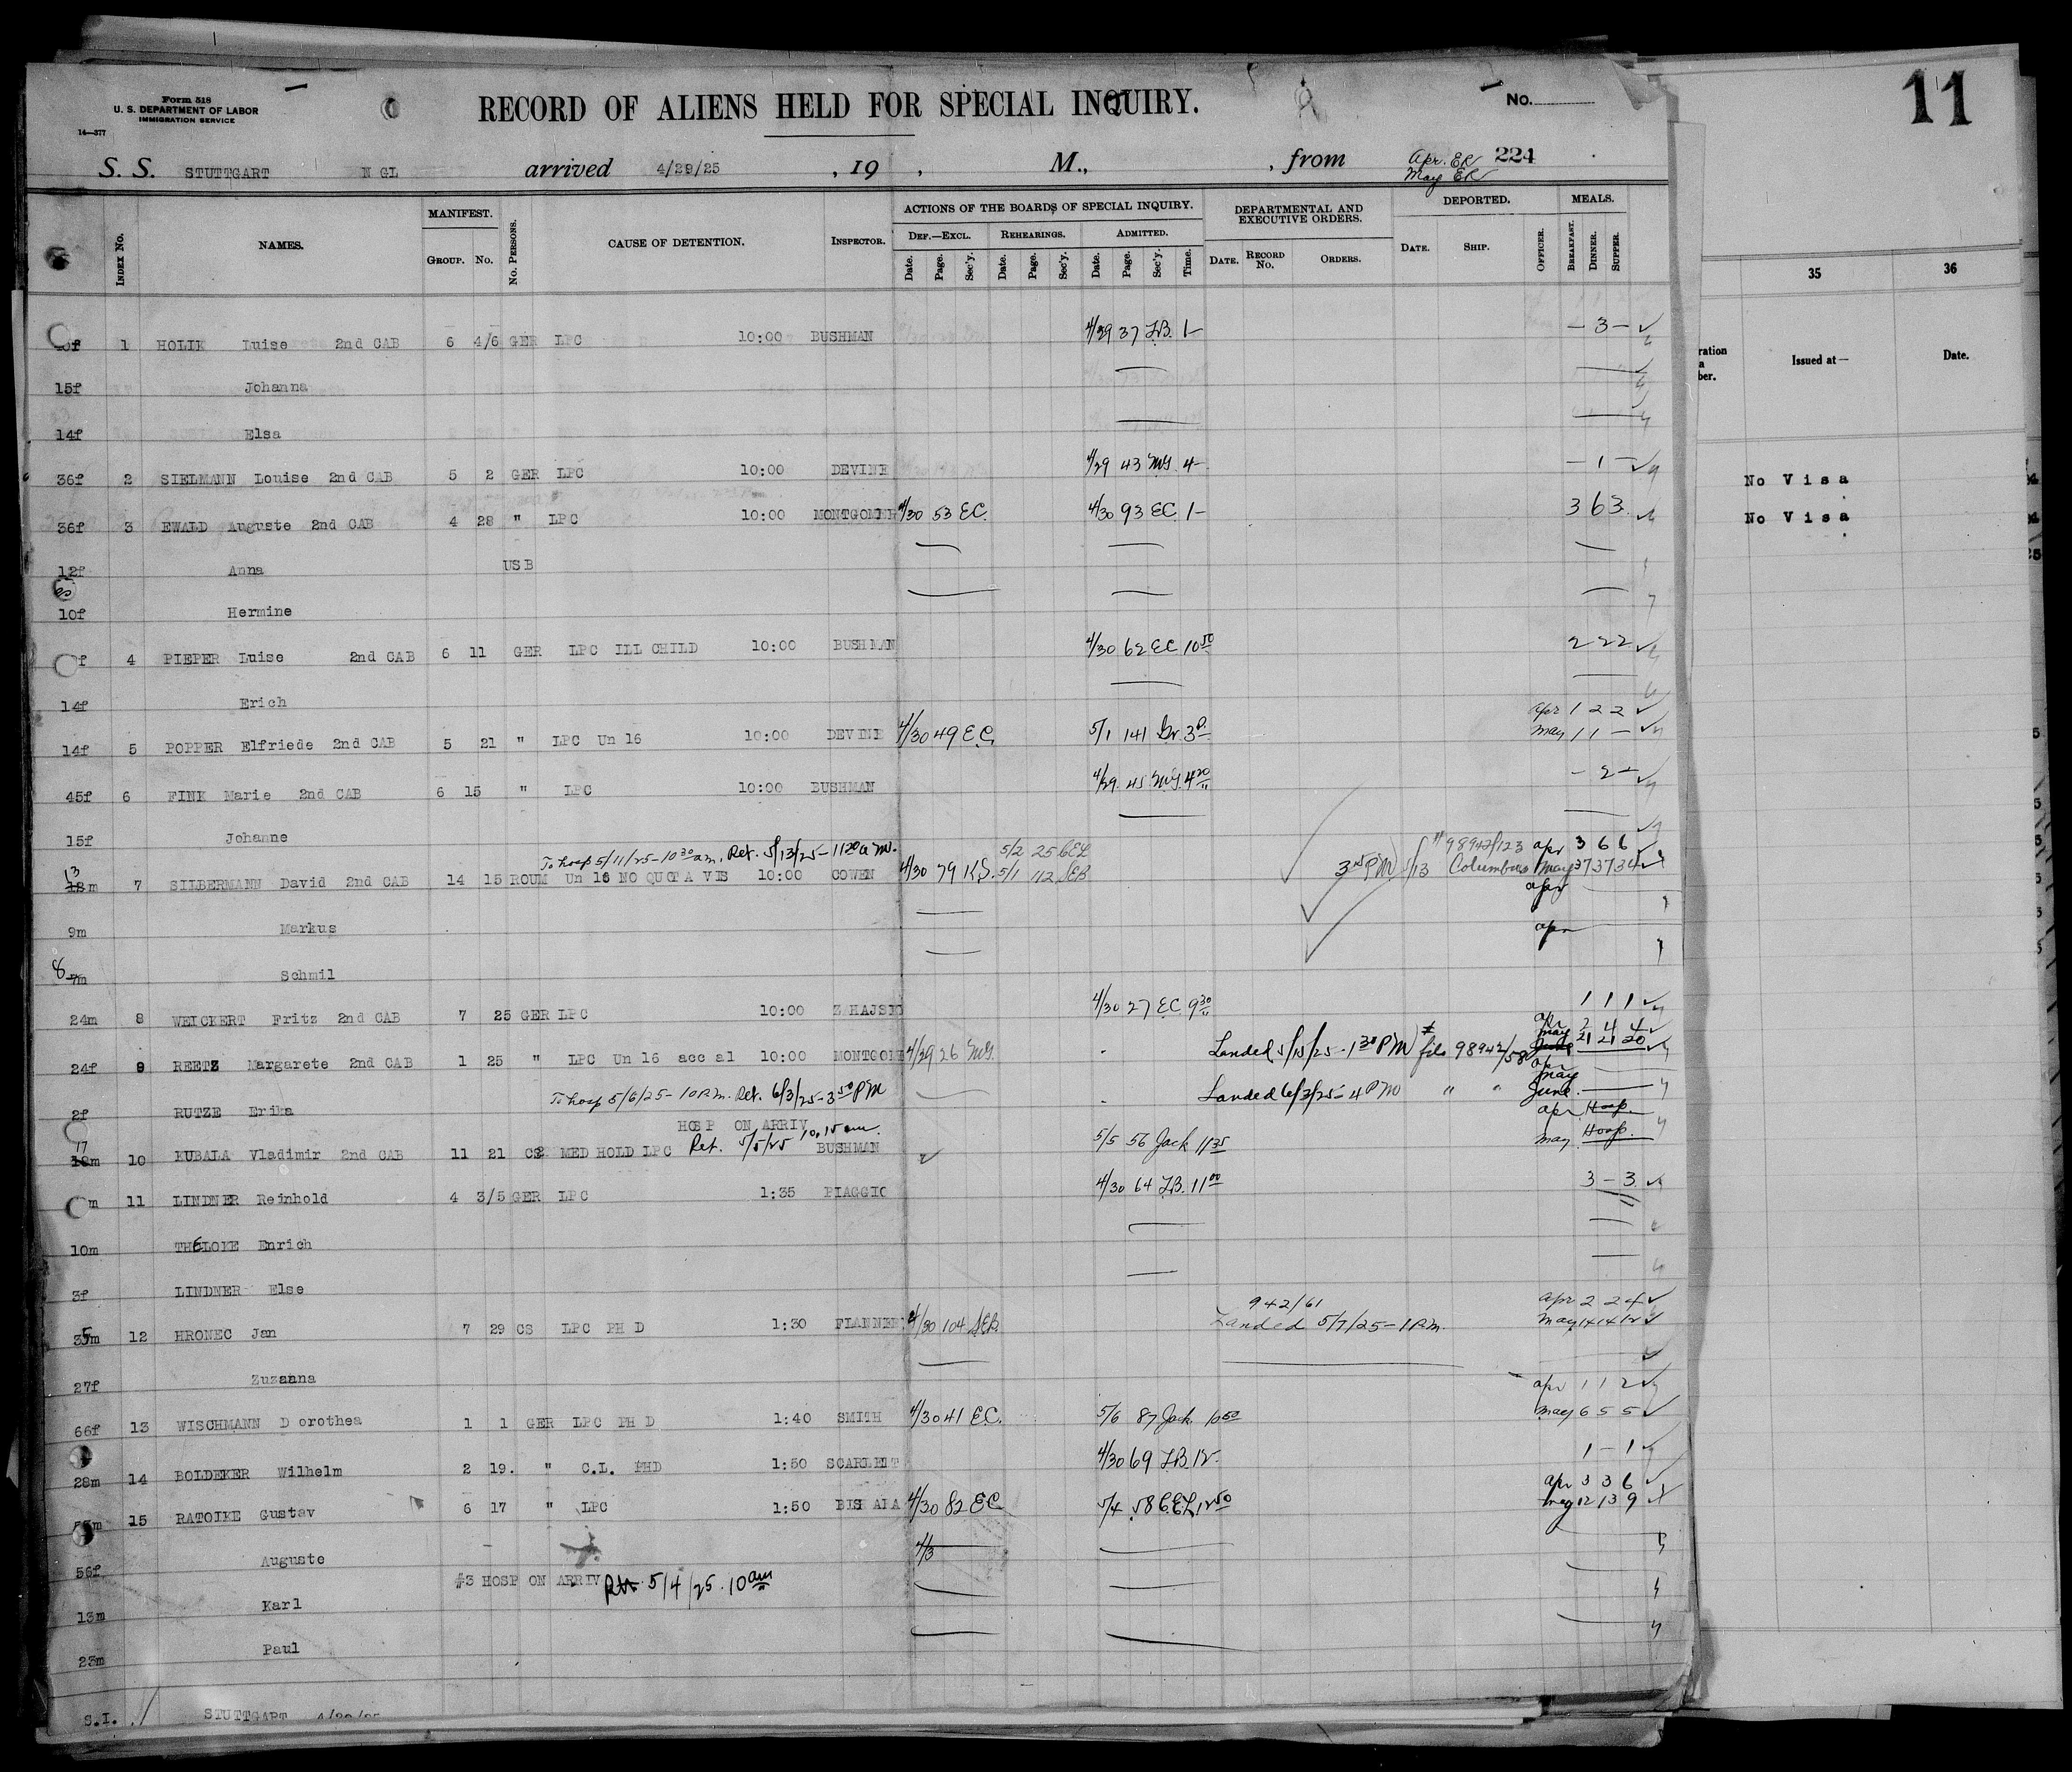 Form 518
U. S. DEPARTMENT OF LABOR
IMMIGRATION SERVICE
14—377
RECORD OF ALIENS HELD FOR SPECIAL INQUIRY.
No.
11
S. S. STUTTGART N GL arrived 4/29/25 , 19 , M., , from Apr. ER 224
May ER
INDEX No. NAMES. MANIFEST. GROUP. No. No. PERSONS. CAUSE OF DETENTION. INSPECTOR. ACTIONS OF THE BOARDS OF SPECIAL INQUIRY. DEF.—EXCL. Date. Page. Sec'y. REHEARINGS. Date. Page. Sec'y. ADMITTED. Date. Page. Sec'y. Time. DEPARTMENTAL AND EXECUTIVE ORDERS. DATE. RECORD No. ORDERS. DEPORTED. DATE. SHIP. OFFICER. MEALS. BREAKFAST. DINNER. SUPPER.
35 36
Issued at— Date.
1 HOLIK Luise 2nd CAB 6 4/6 GER LPC 10:00 BUSHMAN 4/29 37 J.B. 1— — 3 —
15f Johanna
14f Elsa
36f 2 SIELMANN Louise 2nd CAB 5 2 GER LPC 10:00 DEVINE 4/29 43 4— — 1 —
No Visa
36f 3 EWALD Auguste 2nd CAB 4 28 " LPC 10:00 MONTGOMER 4/30 53 EC. 4/30 93 EC. 1— 3 6 3
No Visa
12f Anna USB
10f Hermine
4 PIEPER Luise 2nd CAB 6 11 GER LPC ILL CHILD 10:00 BUSHMAN 4/30 62 EC 10 50 2 2 2
14f Erich
Apr 1 2 2
14f 5 POPPER Elfriede 2nd CAB 5 21 " LPC Un 16 10:00 DEVINE 4/30 49 E.C. 5/1 141 3 May 1 1 —
45f 6 FINK Marie 2nd CAB 6 15 " LPC 10:00 BUSHMAN 4/29 45 4 20 — 2 —
15f Johanne
To hosp 5/11/25 - 10 30 a.m. Ret. 5/13/25 - 11 20 a.m. 5/2 25 CEL #98942/123 Apr 3 6 6
13 18m 7 SILBERMANN David 2nd CAB 14 15 ROUM Un 16 NO QUOTA VIS 10:00 COWEN 4/30 79 K.S. 5/1 112 SEB 3 PM 5/13 Columbus May 37 37 34
9m Markus Apr
8 7m Schmil Apr
24m 8 WEICKERT Fritz 2nd CAB 7 25 GER LPC 10:00 4/30 27 EC 9 30 1 1 1
Apr 2 4 4
24f 9 REETZ Margarete 2nd CAB 1 25 " LPC Un 16 acc al 10:00 MONTGOME 4/29 26 Landed 5/15/25 - 1 30 PM file 98942/58 May 21 21 20
2f RUTZE Erika To hosp 5/6/25 - 10 P.M. Ret. 6/3/25 - 3 50 PM Landed 6/3/25 - 4 PM " " Apr May June
HOSP ON ARRIV Apr Hosp.
17 18m 10 KUBALA Vladimir 2nd CAB 11 21 CS MED HOLD LPC Ret. 5/5/25 10.15 am. BUSHMAN 5/5 56 Jack 11 35 May Hosp.
m 11 LINDNER Reinhold 4 3/5 GER LPC 1:35 PIAGGIO 4/30 64 J.B. 11 00 3 — 3
10m THELOKE Enrich
3f LINDNER Else
942/61 Apr 2 2 4
35m 12 HRONEC Jan 7 29 CS LPC PH D 1:30 FLANNER 4/30 104 SEB. Landed 5/7/25 - 1 P.M. May 14 14 12
27f Zuzanna
Apr 1 1 2
66f 13 WISCHMANN Dorothea 1 1 GER LPC PH D 1:40 SMITH 4/30 41 E.C. 5/6 87 Jack 10 50 May 6 5 5
28m 14 BOLDEKER Wilhelm 2 19. " C.L. PHD 1:50 SCARLETT 4/30 69 J.B. 12 1 — 1
Apr 3 3 6
15 RATOIKE Gustav 6 17 " LPC 1:50 4/30 82 EC 5/4 58 CEL 12 50 May 12 13 9
56f Auguste 4/3
#3 HOSP ON ARRIV Ret. 5/4/25. 10 am
13m Karl
23m Paul
S.I. STUTTGART 4/29/25